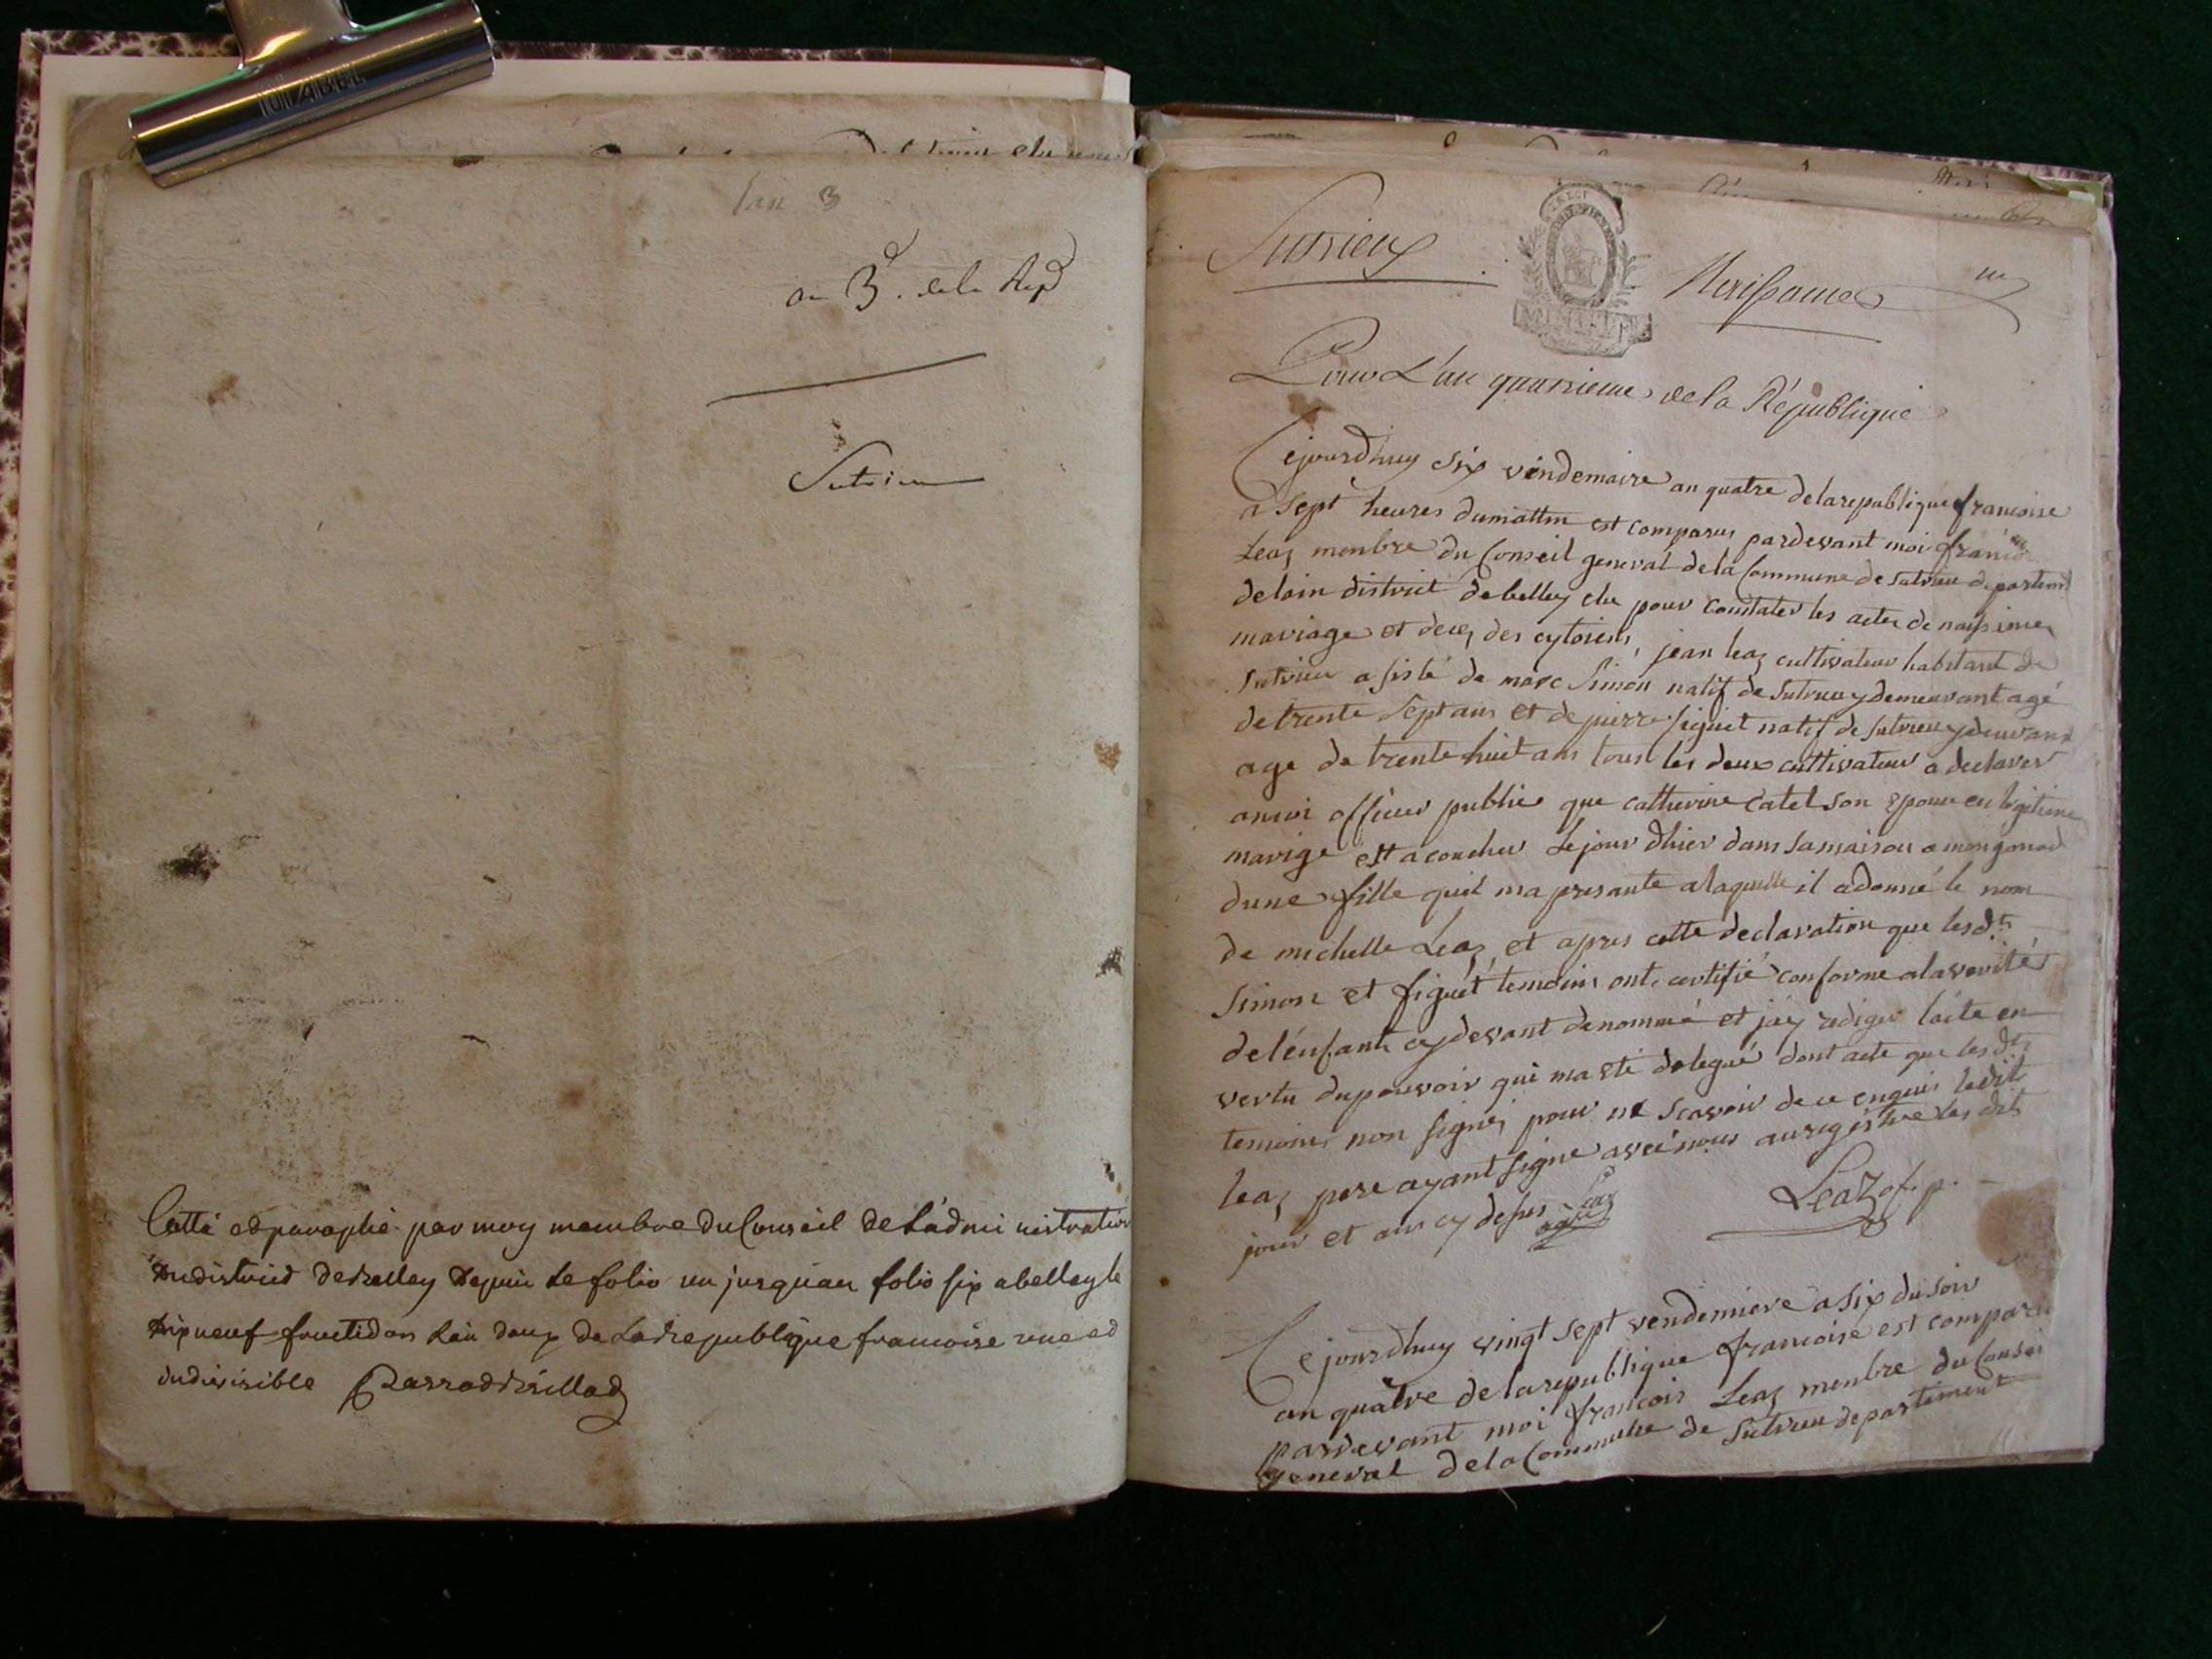 lan 3
an 3.e dela Rep
Sutrieu
Cotté et paraphé par moy membre du Conseil de L'admi nistration
du district de Belley depuis Le folio un jusquau folio six a belley le
dix neuf fructidor Lan deux de La Republique francoise une et
indivisible
Sutrieux
Naissances
Pour L'an quatrieme de la République
Cejourdhuy six vendemaire an quatre delarepublique francoise
a sept heures dumattin est comparus pardevant moi francois
Leaz menbre du Conseil general dela Commune de Sutrieu departemt
delain district debelley elu pour constater les actes de naissances
mariage et deces des cytoiens, jean leaz cultivateur habitant de
Sutrieu assisté de marc Simon natif de Sutrieu y demeurant agé
de trente Sept ans et de pierre figuet natif de Sutrieu y demeurant
age de trente huit ans tous les deux cultivateur a declarer
amoi officier public que catherine Catel son epouse en legitime
marige est acoucher Lejour dhier dans samaison a mongonod
dune fille quil ma presante alaquelle il adonné le nom
de michelle Leaz, et apres cette declaration que lesdts
Simon et figuet temoins ont certifié conforme alaverité
delénfant cy devant denommé et jáy rediger lácte en
vertu dupouvoir qui ma eté delegué dont acte que lesdts
temoins non signés pour ne scavoir de ce enquis ledit
leaz pere ayant signe avec nous auregistre les dits
jour et ans cy desus
Leaz of. p.
Cejourdhuy vingt sept vendemiere a six du soir
an quatre delarepublique francoise est comparu
pardevant moi francois Leaz menbre du Conseil
general dela Commune de Sutrieu departement